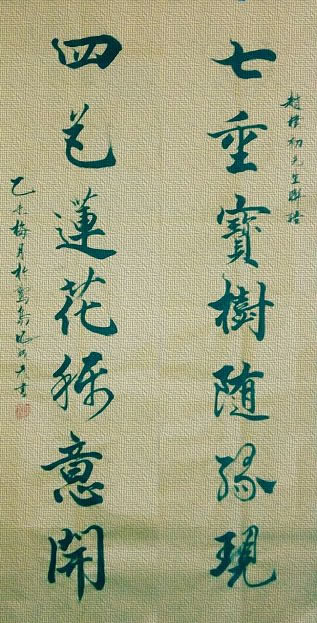 趙樸初先生聯語
七重寶樹随緣現
四色蓮花稱意開
乙未梅月於鷺島書